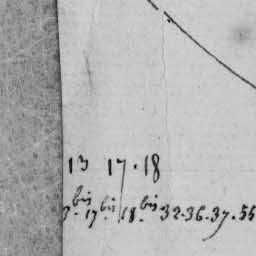 13 17 · 18
3.bis 17.bis 18.bis 32·36·37·55